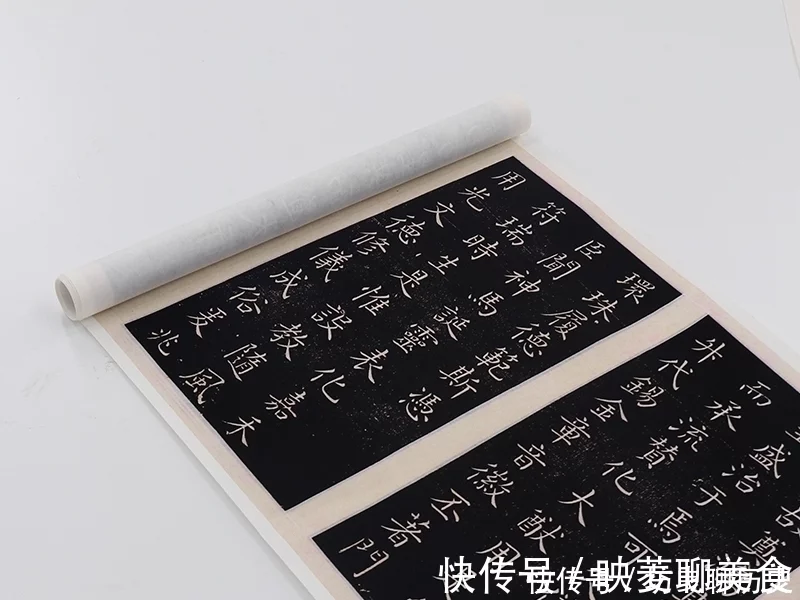 環珠履德範斯憑
臣聞神馬誕靈表化嘉禾
符瑞時生是惟設教隨風
用光文德修儀成俗爰兆
盛治于焉可
而承流贊化大猷用
升代錫金章音徽丕著門
快传号 / 映菱聊美食